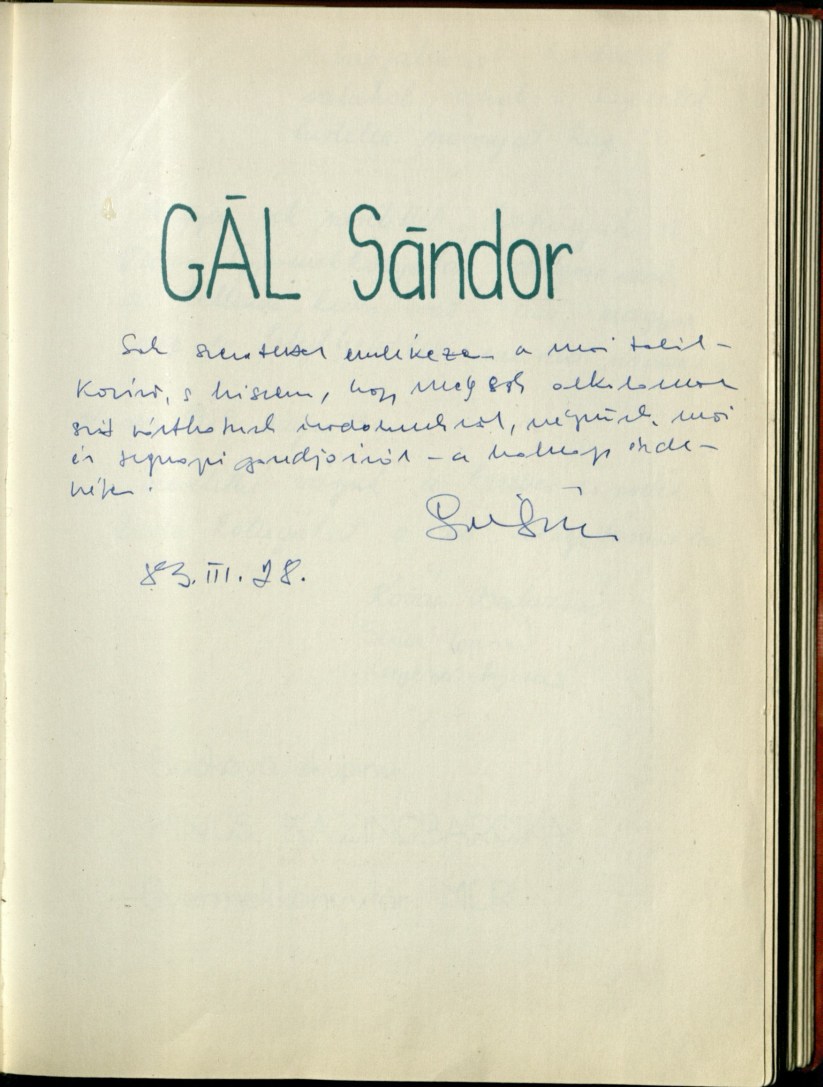 GÁL Sándor
Sok szeretettel emlékezem a mai talál-
kozóra, s hiszem, hogy még sok alkalommal
szót válthatunk irodalmunkról, népünk mai
és tegnapi gondjairól – a holnap érde-
kében.
83. III. 28.